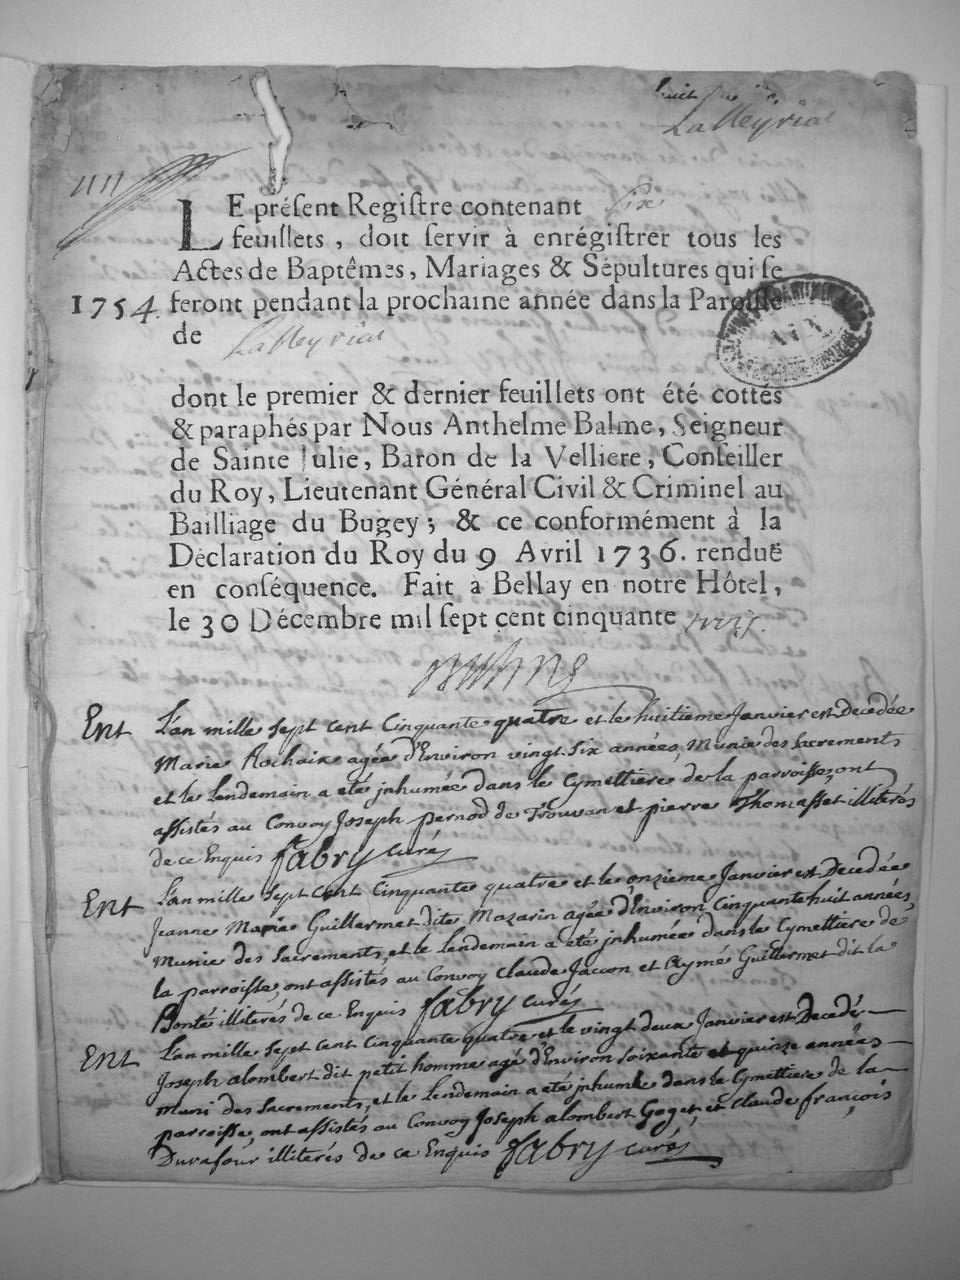 huit
Lalleyriat
LE présent Registre contenant six
feuillets, doit servir à enrégistrer tous les
Actes de Baptêmes, Mariages & Sépultures qui se
1754. feront pendant la prochaine année dans la Paroisse
de Lalleyriat
dont le premier & dernier feuillets ont été cottés
& paraphés par Nous Anthelme Balme, Seigneur
de Sainte Julie, Baron de la Velliere, Conseiller
du Roy, Lieutenant Général Civil & Criminel au
Bailliage du Bugey; & ce conformément à la
Déclaration du Roy du 9 Avril 1736. renduë
en conséquence. Fait à Bellay en notre Hôtel,
le 30 Décembre mil sept cent cinquante trois.
Ent L'an mille sept cent Cinquante quatre et le huitieme Janvier est Decedée
Marie Rochaix agée d'Environ vingt six années, Munie des Sacrements
et le Lendemain a eté jnhumée dans le Cymettiere de la parroisse, ont
assistés au Convoy Joseph pernod de Trouvan et pierre Thomasset illiterés
de ce Enquis fabry curé
Ent L'an mille sept cent Cinquante quatre et le onzieme Janvier est Decedée
Jeanne Marie Guillermet dite Mazarin agée d'Environ Cinquante huit années,
Munie des Sacrements, et le Lendemain a eté jnhumée dans le Cymettiere de
la parroisse, ont assistés au Convoy Claude Jacson et Aymé Guillermet dit la
Bonté illiterés de ce Enquis fabry curé
Ent L'an mille sept cent Cinquante quatre et le vingt deux Janvier est Decedé
Joseph alombert dit petit homme agé d'Environ soixante et quinze années
muni des Sacrements, et le Lendemain a eté jnhumé dans le Cymettiere de la
parroisse, ont assistés au Convoy Joseph alombert Goget, et Claude françois
Durafour illiterés de ce Enquis fabry curé